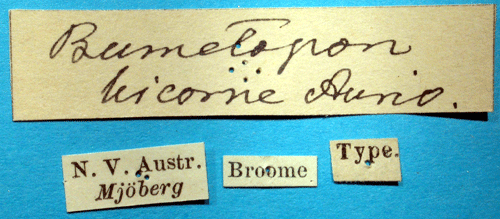 Bumetopon
bicorne Auriv.
N. V. Austr.
Mjöberg
Broome
Type.